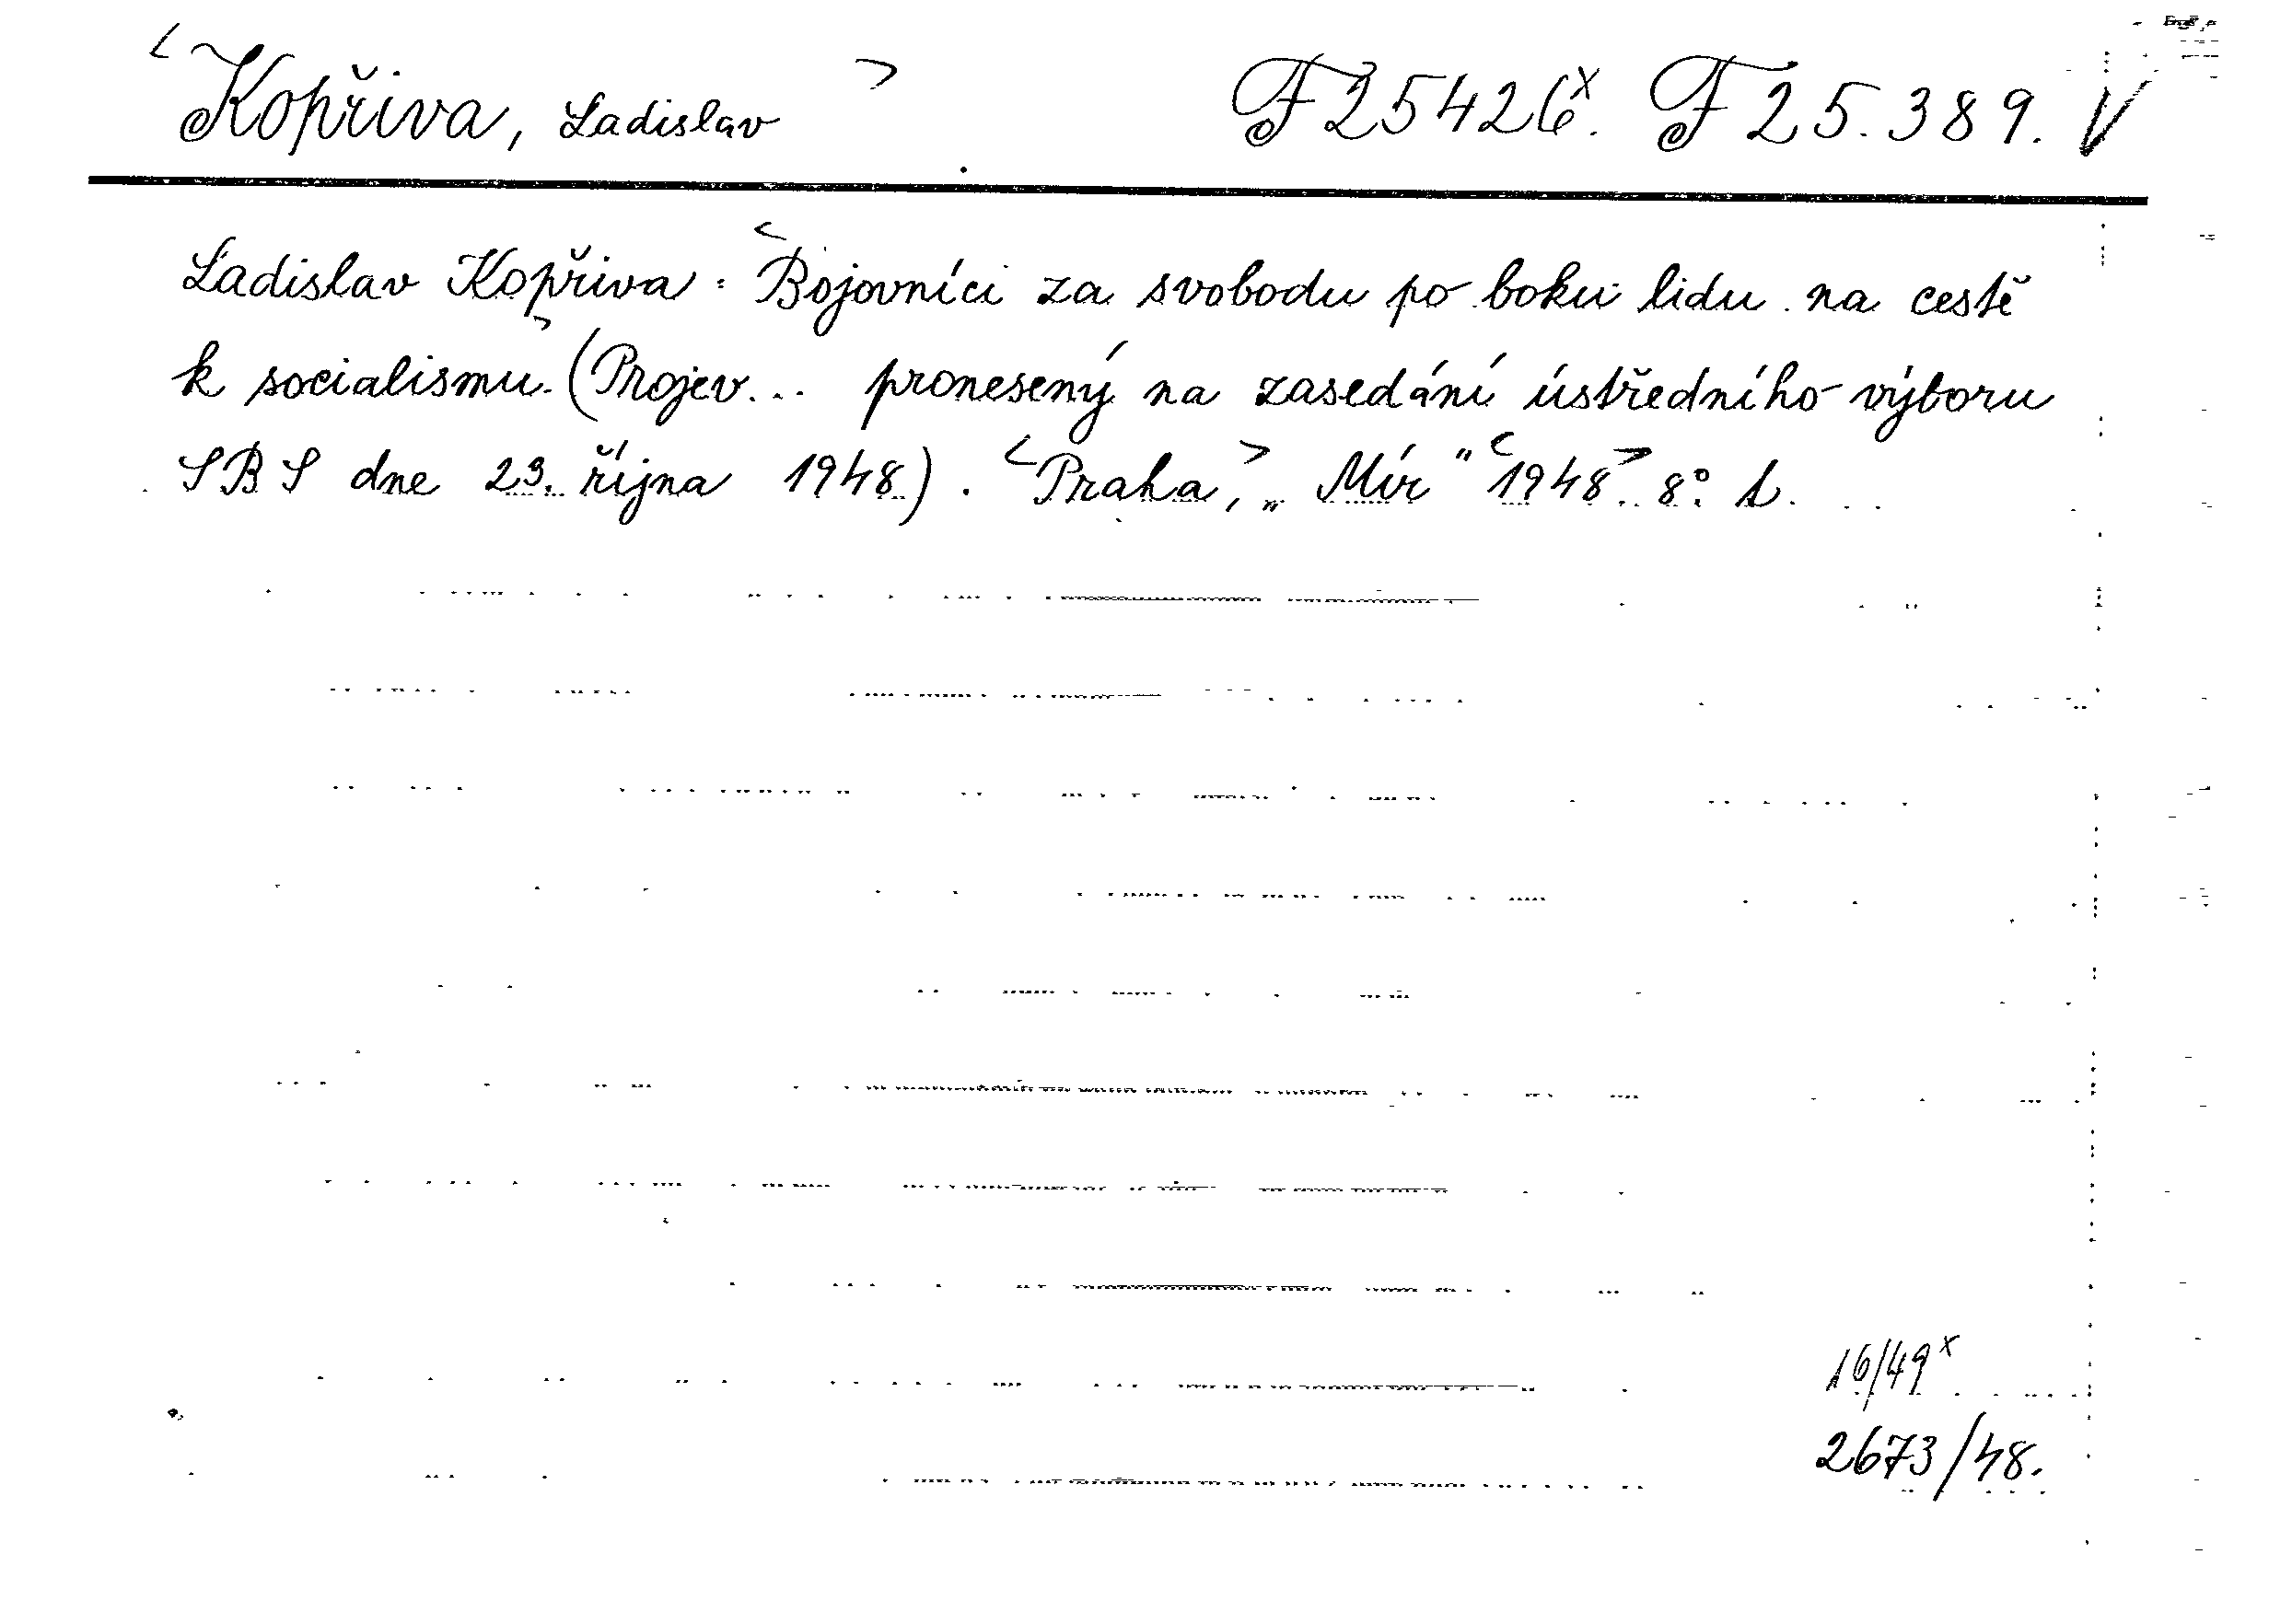 <Kopřiva, Ladislav> F 25426x. F 25.389. V
Ladislav Kopřiva: <Bojovníci za svobodu po boku lidu na cestě
k socialismu.> (Projev... pronesený na zasedání ústředního výboru
SBS dne 23. října 1948). <Praha,> „Mír" <1948.> 8° b.
16/49x
2673/48.